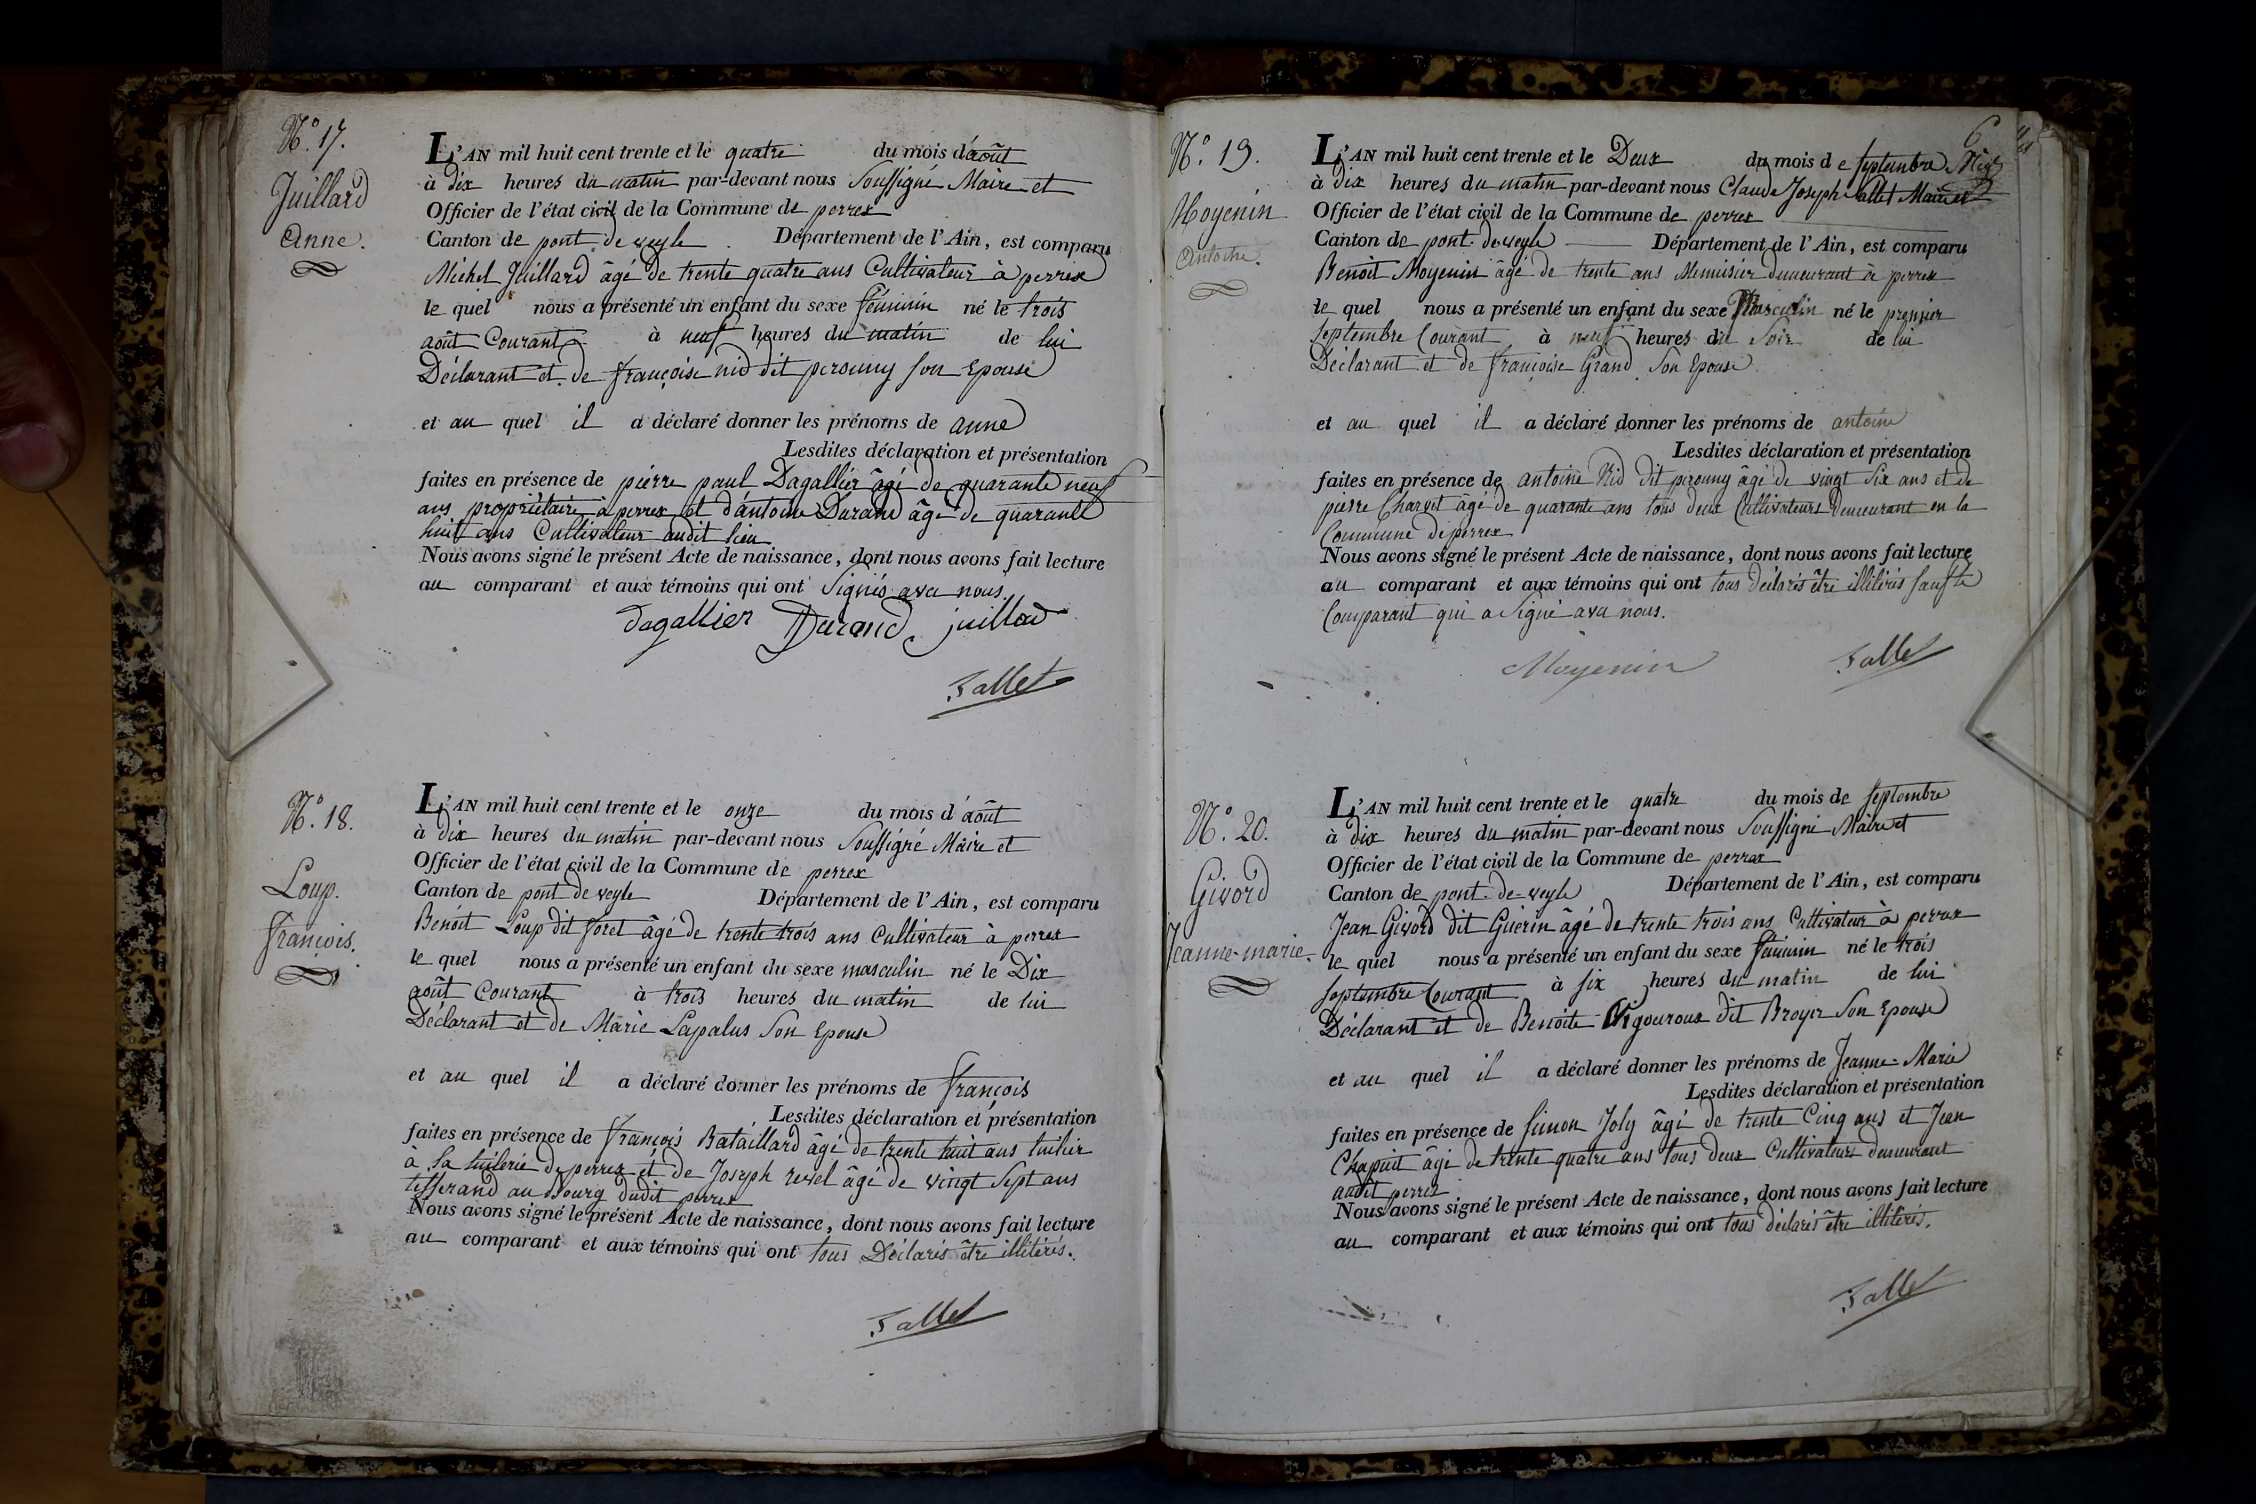 N.° 17.
Juillard
Anne.
L'AN mil huit cent trente et le quatre du mois d'août
à dix heures du matin par-devant nous Soussigné Maire et
Officier de l'état civil de la Commune de perrex
Canton de pont de veyle Département de l'Ain, est comparu
Michel Juillard âgé de trente quatre ans Cultivateur à perrex
le quel nous a présenté un enfant du sexe féminin né le trois
août Courant à neuf heures du matin de lui
Déclarant et de françoise nid dit perouny son Epouse
et au quel il a déclaré donner les prénoms de anne
Lesdites déclaration et présentation
faites en présence de pierre paul Dagallier âgé de quarante neuf
ans propriétaire à perrex et d'antoine Durand âgé de quarante
huit ans Cultivateur audit lieu
Nous avons signé le présent Acte de naissance, dont nous avons fait lecture
au comparant et aux témoins qui ont Signés avec nous.
Dagallier Durand juillard
Fallet
N.° 18.
Loup.
françois.
L'AN mil huit cent trente et le onze du mois d'août
à dix heures du matin par-devant nous Soussigné Maire et
Officier de l'état civil de la Commune de perrex
Canton de pont de veyle Département de l'Ain, est comparu
Benoit Loup dit foret âgé de trente trois ans Cultivateur à perrex
le quel nous a présenté un enfant du sexe masculin né le Dix
août Courant à trois heures du matin de lui
Déclarant et de Marie Lapalus Son Epouse
et au quel il a déclaré donner les prénoms de françois
Lesdites déclaration et présentation
faites en présence de françois Bataillard âgé de trente huit ans tuilier
à la tuilerie de perrex et de Joseph revel âgé de vingt Sept ans
tisserand au Bourg dudit perrex
Nous avons signé le présent Acte de naissance, dont nous avons fait lecture
au comparant et aux témoins qui ont tous Déclarés être illitérés.
Fallet
6
N.° 19.
Moyenin
Antoine.
L'AN mil huit cent trente et le Deux du mois de septembre
à dix heures du matin par-devant nous Claude Joseph Fallet Maire et
Officier de l'état civil de la Commune de perrex
Canton de pont de veyle Département de l'Ain, est comparu
Benoit Moyenin âgé de trente ans Menuisier demeurant à perrex
le quel nous a présenté un enfant du sexe Masculin né le premier
septembre Courant à neuf heures du Soir de lui
Déclarant et de françoise Grand Son Epouse
et au quel il a déclaré donner les prénoms de antoine
Lesdites déclaration et présentation
faites en présence de antoine Nid dit perouny âgé de vingt Six ans et de
pierre Charvet âgé de quarante ans tous deux Cultivateurs Demeurant en la
Commune de perrex
Nous avons signé le présent Acte de naissance, dont nous avons fait lecture
au comparant et aux témoins qui ont tous déclarés être illitérés sauf le
Comparant qui a Signé avec nous.
Moyenin Fallet
N.° 20.
Givord
Jeanne-marie.
L'AN mil huit cent trente et le quatre du mois de septembre
à dix heures du matin par-devant nous Soussigné Maire et
Officier de l'état civil de la Commune de perrex
Canton de pont-de-veyle Département de l'Ain, est comparu
Jean Givord dit Guerin âgé de trente trois ans Cultivateur à perrex
le quel nous a présenté un enfant du sexe féminin né le trois
septembre Courant à six heures du matin de lui
Déclarant et de Benoite Vigouroux dit Broyer Son Epouse
et au quel il a déclaré donner les prénoms de Jeanne-Marie
Lesdites déclaration et présentation
faites en présence de Simon Joly âgé de trente Cinq ans et Jean
Chapuit âgé de trente quatre ans tous deux Cultivateurs demeurant
audit perrex
Nous avons signé le présent Acte de naissance, dont nous avons fait lecture
au comparant et aux témoins qui ont tous déclarés être illitérés.
Fallet